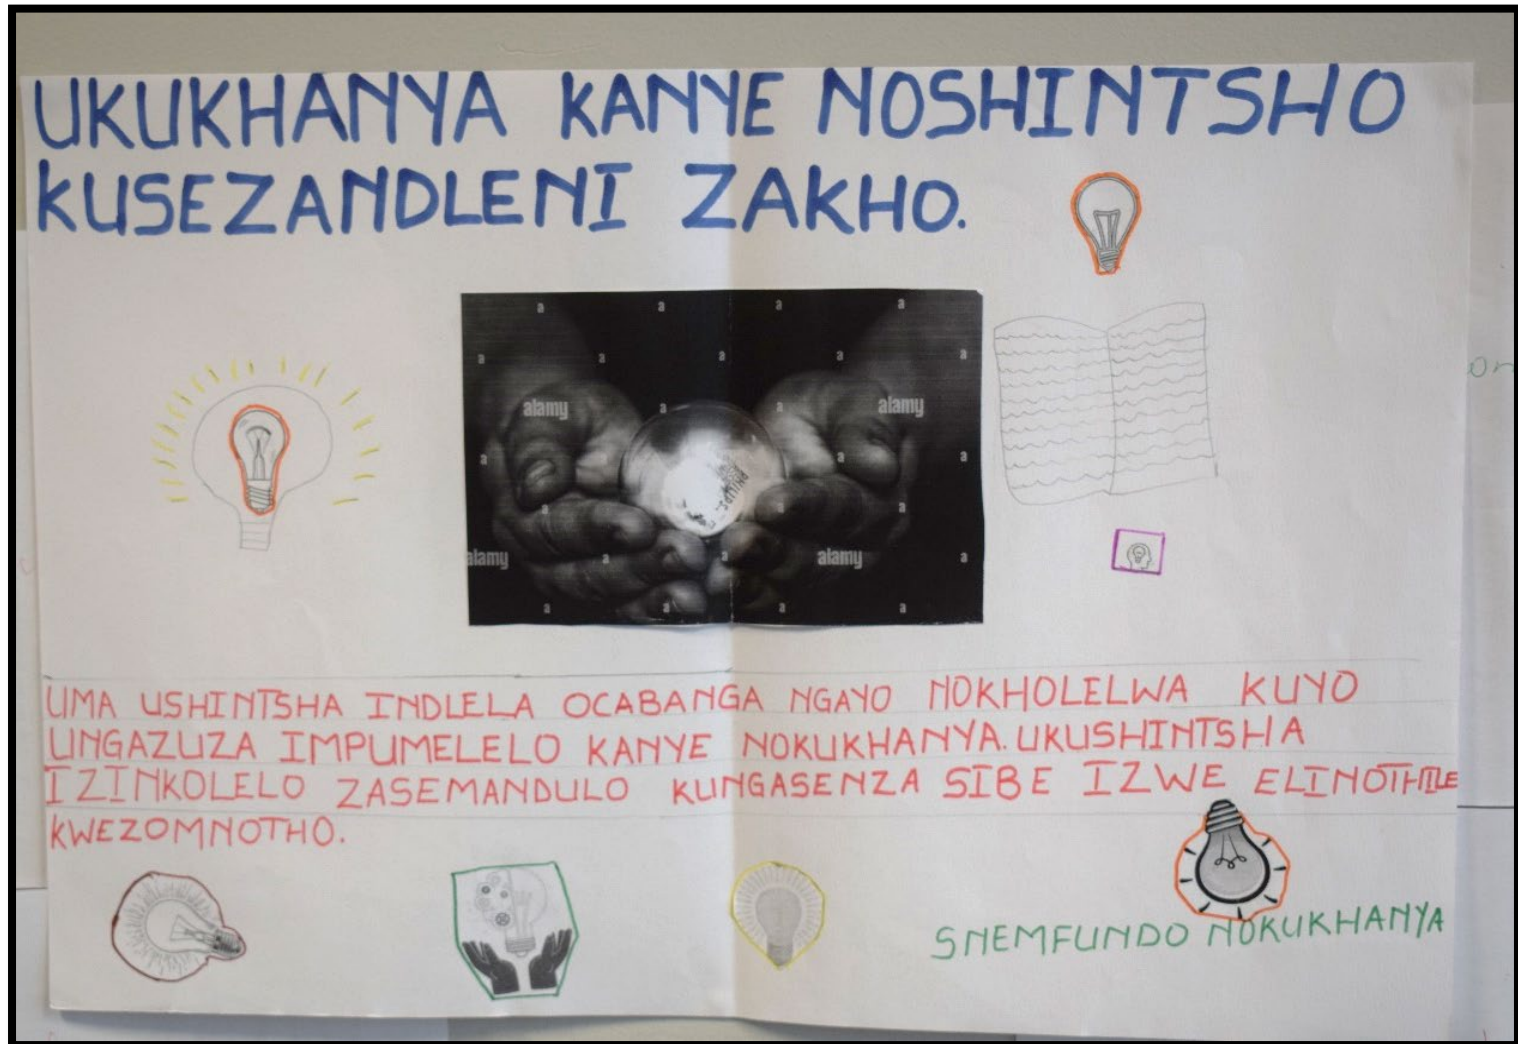 UKUKHANYA KANYE NOSHINTSHO
KUSEZANDLENI ZAKHO.
alamy
alamy
PHILIPS
alamy
alamy
UMA USHINTSHA INDLELA OCABANGA NGAYO NOKHOLELWA KUYO
UNGAZUZA IMPUMELELO KANYE NOKUKHANYA. UKUSHINTSHA
IZINKOLELO ZASEMANDULO KUNGASENZA SIBE IZWE ELINOTHILE
KWEZOMNOTHO.
SNEMFUNDO NOKUKHANYA